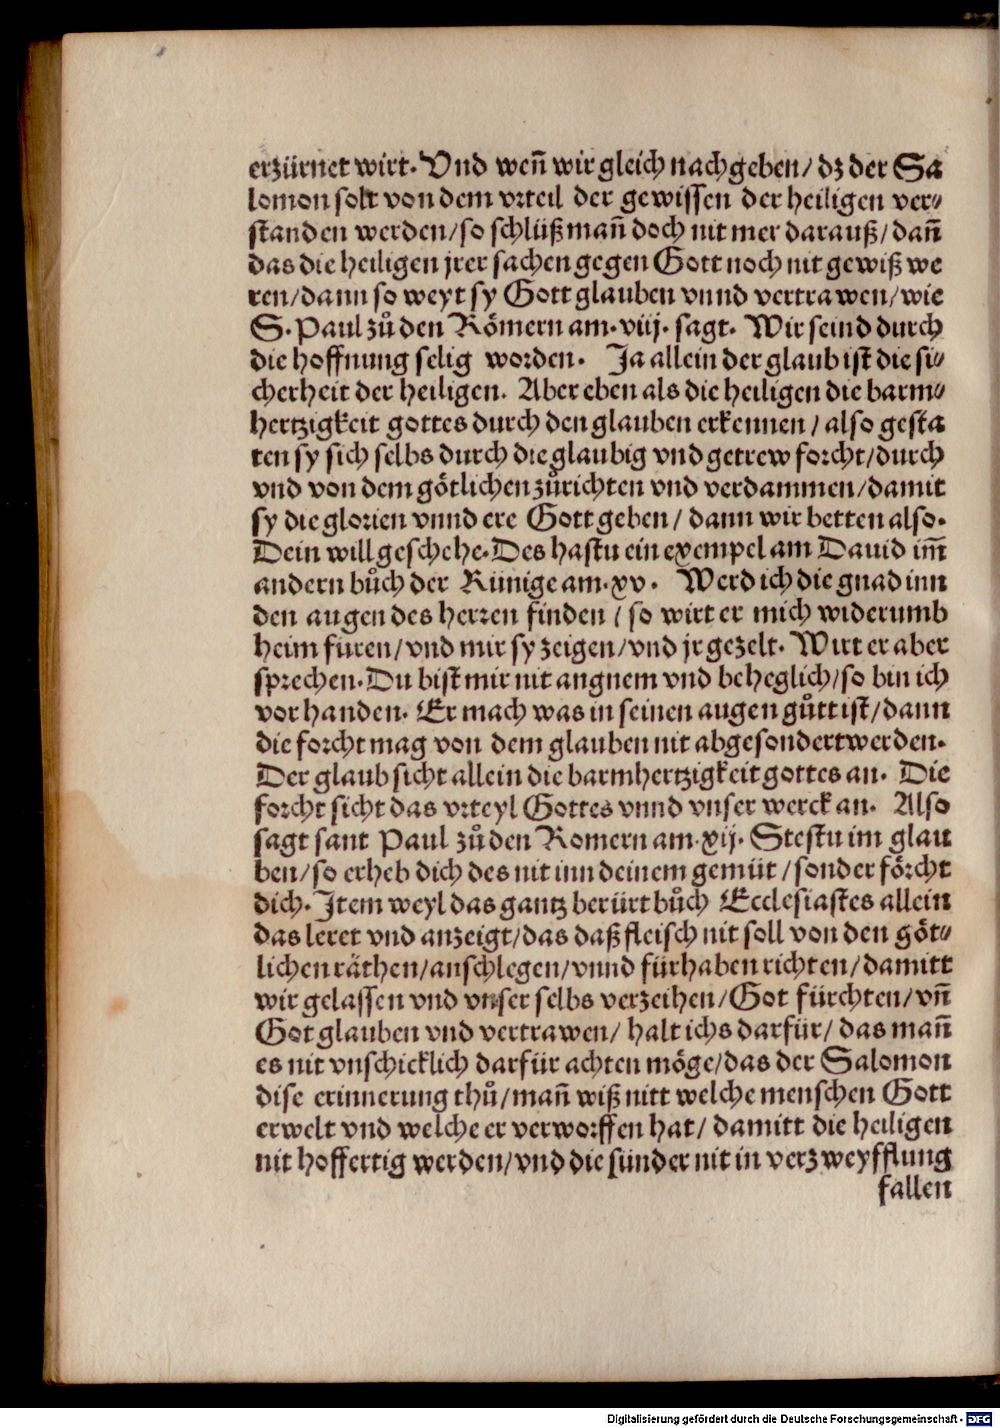 erzürnet wirt. Vnd weñ wir gleich nachgeben/ dz der Sa
lomon solt von dem vrteil der gewissen der heiligen ver⸗
standen werden/so schlüß mañ doch nit mer darauß/dañ
das die heiligen jrer sachen gegen Gott noch nit gewiß we
ren/dann so weyt sy Gott glauben vnnd vertrawen/wie
S. Paul zů den Römern am. viij. sagt. Wir seind durch
die hoffnung selig worden. Ja allein der glaub ist die si⸗
cherheit der heiligen. Aber eben als die heiligen die barm⸗
hertzigkeit gottes durch den glauben erkennen/ also gesta
ten sy sich selbs durch die glaubig vnd getrew forcht/durch
vnd von dem götlichen zůrichten vnd verdammen/damit
sy die glorien vnnd ere Gott geben/ dann wir betten also.
Dein will geschehe. Des hastu ein exempel am Dauid im̃
andern bůch der Künige am. xv. Werd ich die gnad inn
den augen des herren finden/ so wirt er mich widerumb
heim füren/vnd mir sy zeigen/vnd jr gezelt. Wirt er aber
sprechen. Du bist mir nit angnem vnd beheglich/so bin ich
vorhanden. Er mach was in seinen augen gůtt ist/dann
die forcht mag von dem glauben nit abgesondert werden.
Der glaub sicht allein die barmhertzigkeit gottes an. Die
forcht sicht das vrteyl Gottes vnnd vnser werck an. Also
sagt sant Paul zů den Romern am. xij. Stestu im glau
ben/so erheb dich des nit inn deinem gemüt/sonder förcht
dich. Item weyl das gantz berürt bůch Ecclesiastes allein
das leret vnd anzeigt/das daß fleisch nit soll von den göt⸗
lichen räthen/anschlegen/vnnd fürhaben richten/damitt
wir gelassen vnd vnser selbs verzeihen/Got fürchten/vñ
Got glauben vnd vertrawen/ halt ichs darfür/ das mañ
es nit vnschicklich darfür achten möge/das der Salomon
dise erinnerung thů/mañ wiß nitt welche menschen Gott
erwelt vnd welche er verworffen hat/ damitt die heiligen
nit hoffertig werden/vnd die sünder nit in verzweyfflung
fallen
Digitalisierung gefördert durch die Deutsche Forschungsgemeinschaft - DFG